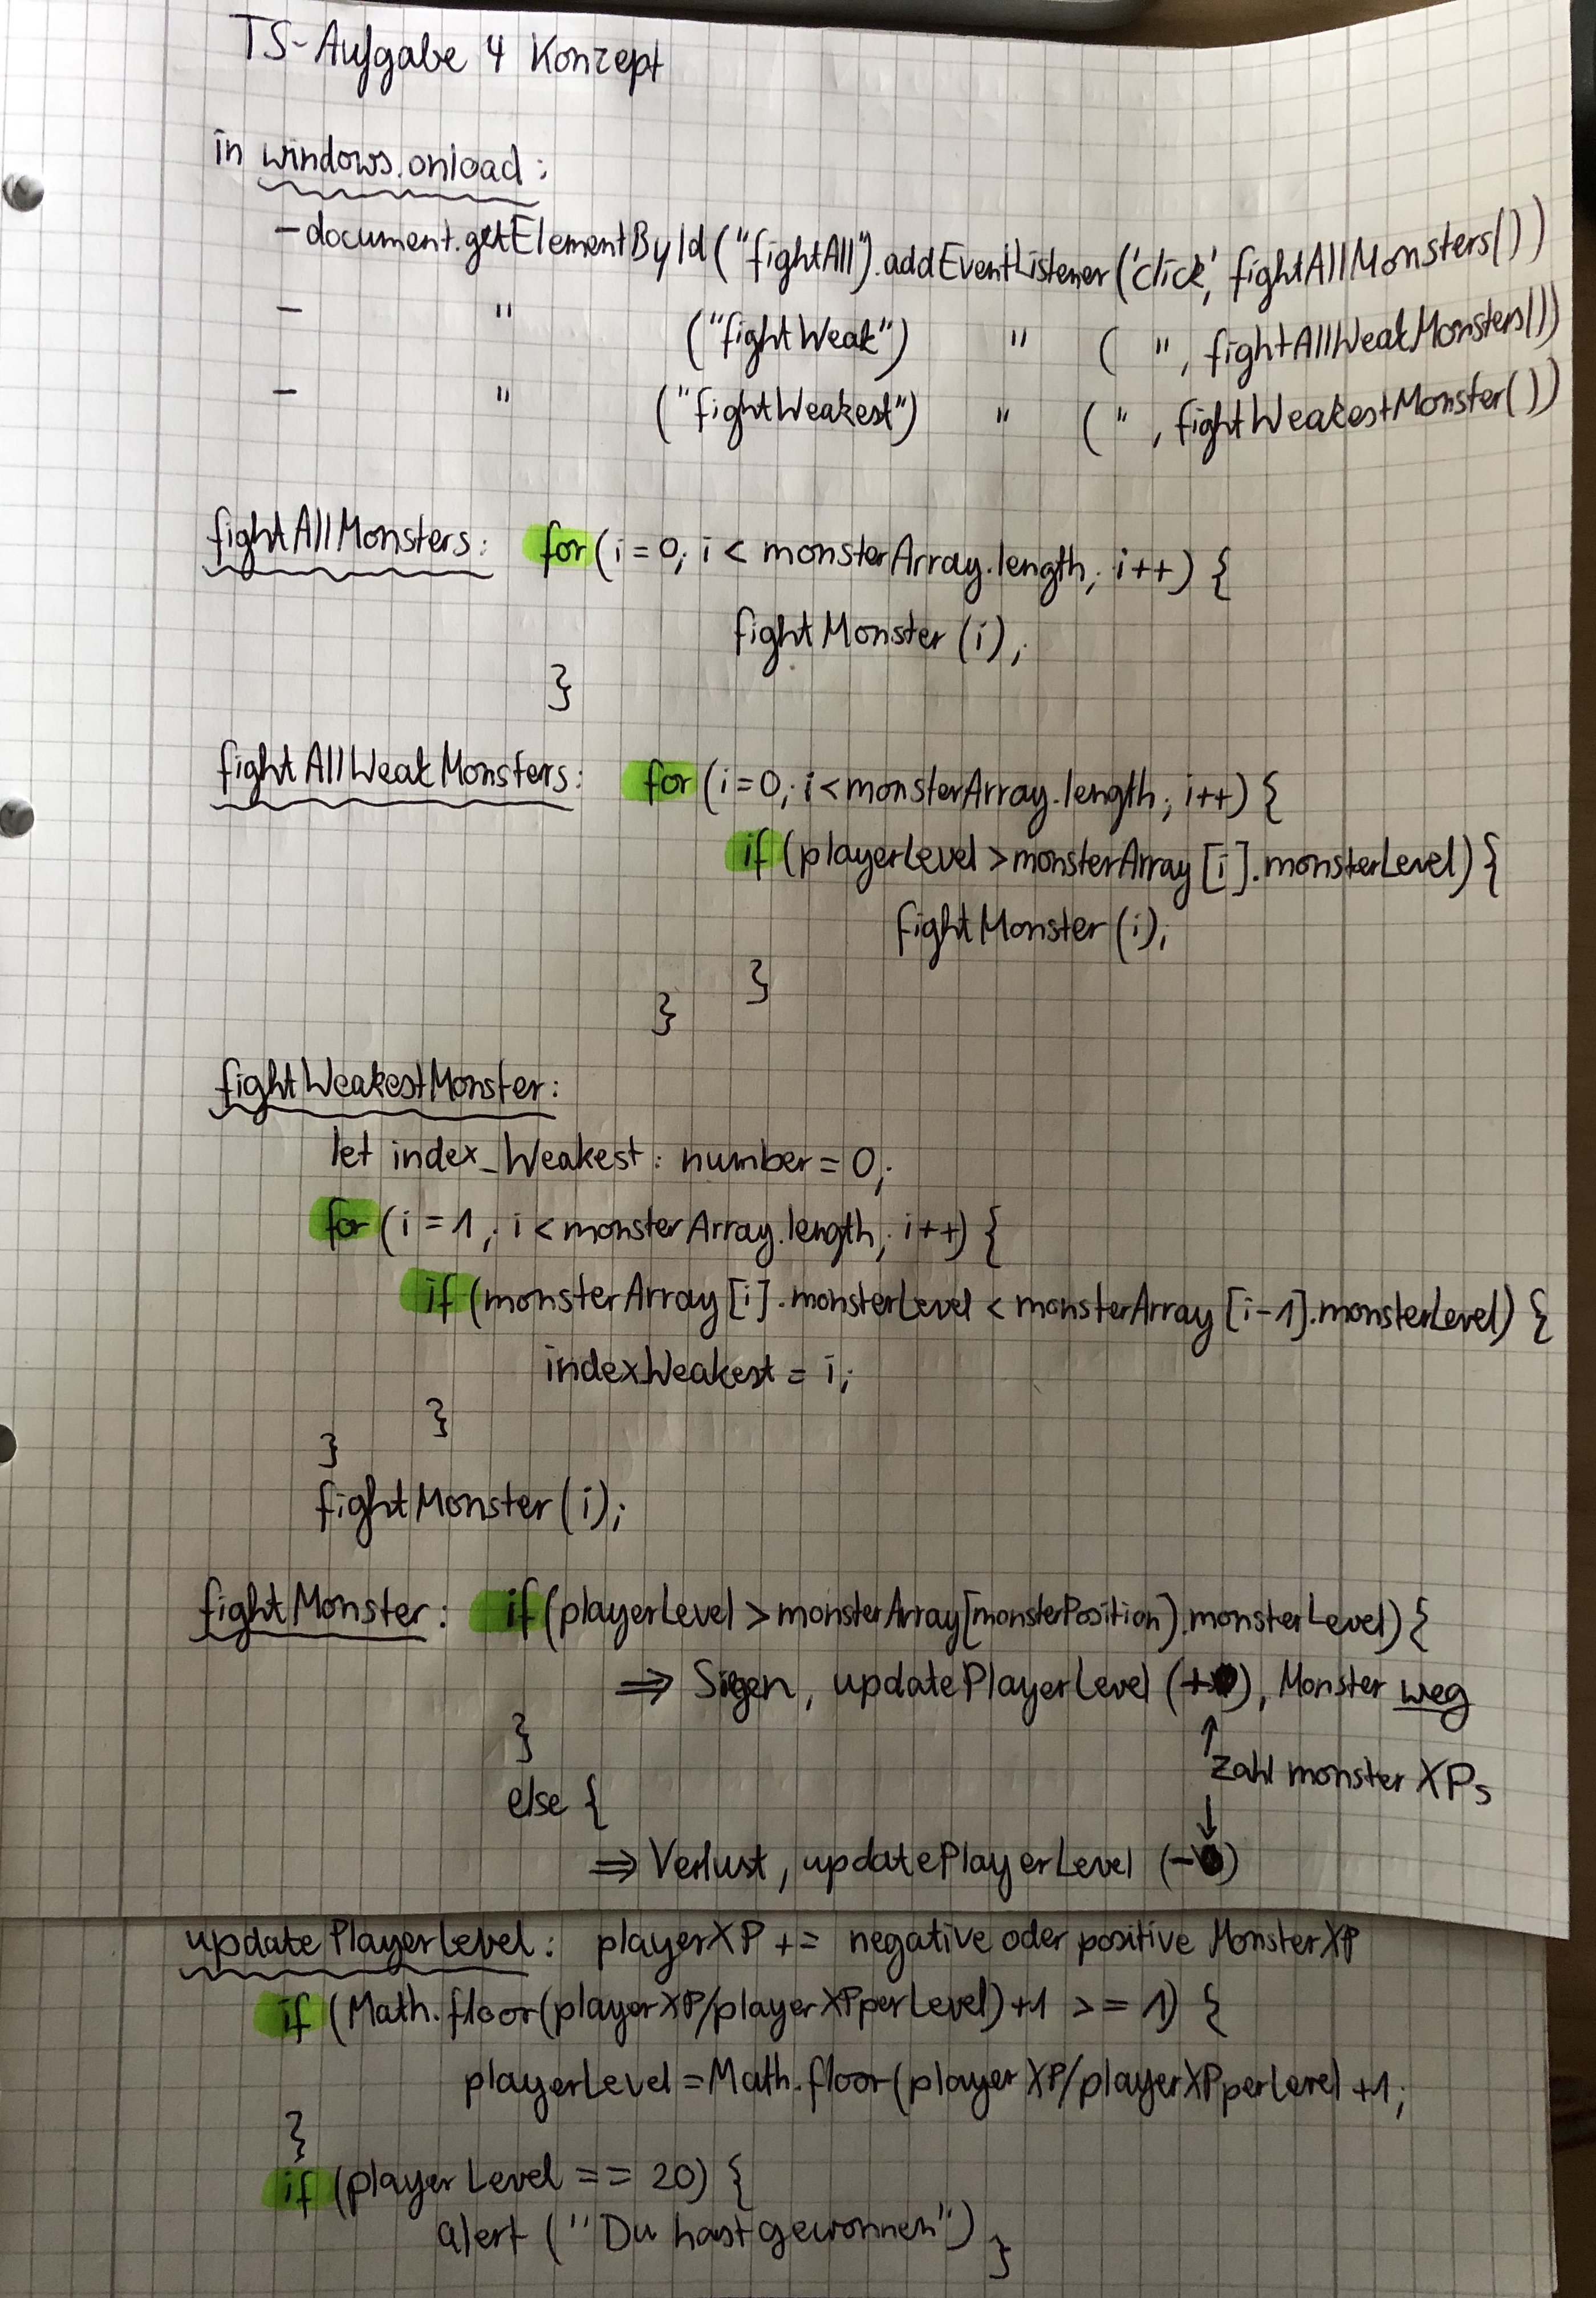 TS-Aufgabe 4 Konzept
in windows.onload:
- document.getElementById("fightAll").addEventListener('click', fightAllMonsters())
- " ("fightWeak") " ( ", fightAllWeakMonsters())
- " ("fightWeakest") " ( ", fightWeakestMonster())
fightAllMonsters: for (i=0; i < monsterArray.length; i++) {
fightMonster (i);
}
fightAllWeakMonsters: for (i=0; i<monsterArray.length; i++) {
if (playerLevel > monsterArray [i].monsterLevel) {
fightMonster (i);
}
}
fightWeakestMonster:
let index_Weakest: number = 0;
for (i = 1; i < monsterArray.length; i++) {
if (monsterArray [i].monsterLevel < monsterArray [i-1].monsterLevel) {
index_Weakest = i;
}
}
fightMonster (i);
fightMonster: if (playerLevel > monsterArray[monsterPosition].monsterLevel) {
⇒ Siegen, updatePlayerLevel (+), Monster weg
}
↑
Zahl monster XPs
else {
↓
⇒ Verlust, updatePlayerLevel (-)
updatePlayerLevel: playerXP += negative oder positive MonsterXP
if (Math.floor(playerXP/playerXPperLevel)+1 >= 1) {
playerLevel = Math.floor(playerXP/playerXPperLevel) +1;
}
if (playerLevel == 20) {
alert ("Du hast gewonnen") }